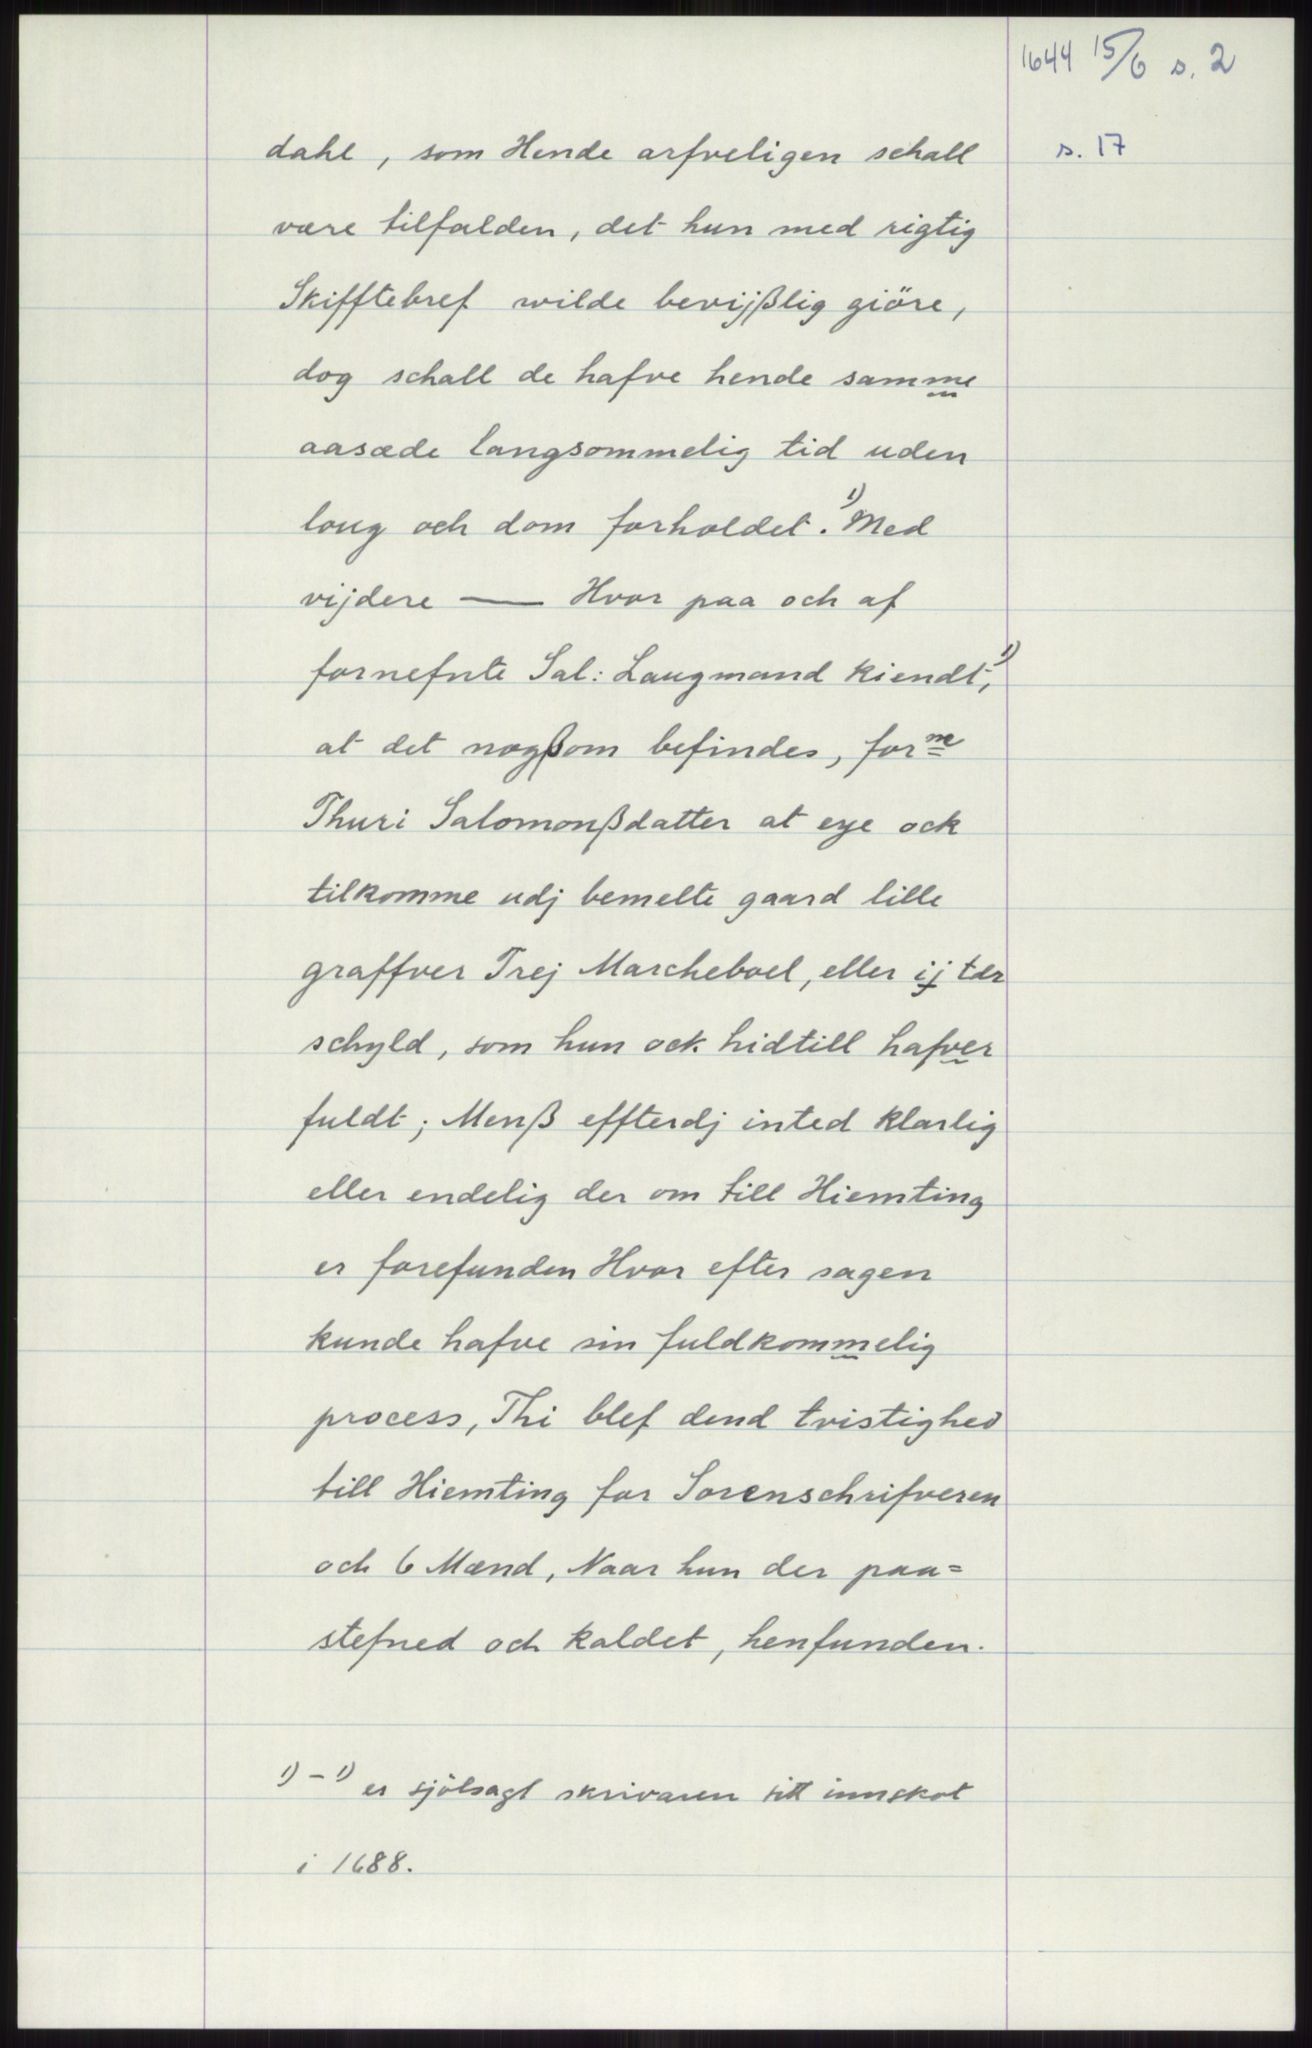 1644 15/6 s. 2
dahl, som Hende arfveligen schall s. 17
være tilfalden, det hun med rigtig
Skifftebref wilde bevijßlig giöre,
dog schall de hafve hende samme
aasæde langsommelig tid uden
loug och dom forholdet. 1) Med
vijdere — Hvor paa och af
fornefnte Sal: Laugmand kiendt, 1)
at det nogßom befindes, forne
Thuri Salomonßdatter at eye ock
tilkomme udj bemelte gaard lille
graffver Trej Marcheboel, eller ij tdr
schyld, som hun ock hidtill hafver
fuldt; Menß effterdj inted klarlig
eller endelig der om till Hiemting
er forefunden Hvor efter sagen
kunde hafve sin fuldkommelig
process, Thi blef dend tvistighed
till Hiemting for Sorenschrifveren
och 6 Mænd, Naar hun der paa=
stefned och kaldet, henfunden.
1) - 1) er sjölsagt skrivaren sitt innskot
i 1688.